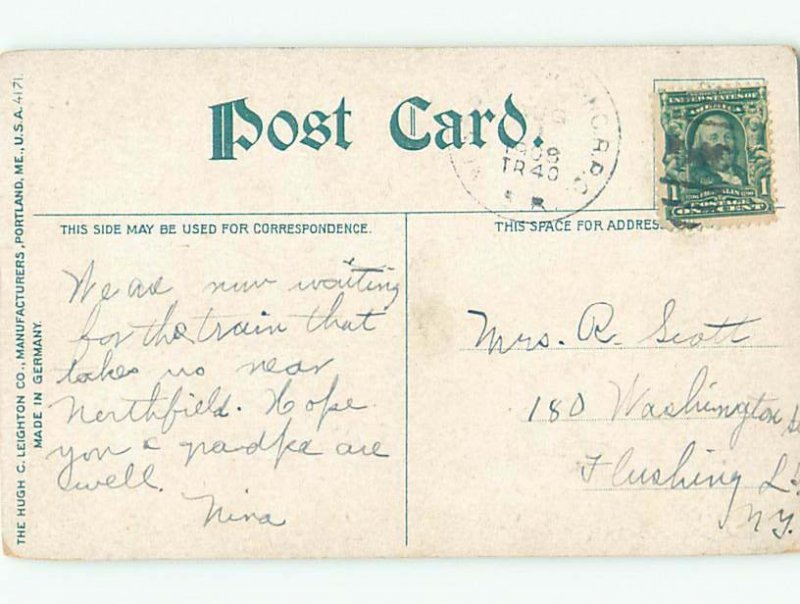 Post Card.
1908
TR 40
UNITED STATES OF
AMERICA
1 1
FRANKLIN
POSTAGE
ONE CENT
THIS SIDE MAY BE USED FOR CORRESPONDENCE.
THIS SPACE FOR ADDRESS
We are now waiting
for the train that
takes us near
Northfield. Hope
you & grandpa are
well.
Nina
Mrs. R. Scott
180 Washington
Flushing L.
N.Y.
THE HUGH C. LEIGHTON CO., MANUFACTURERS, PORTLAND, ME., U.S.A. 4171.
MADE IN GERMANY.